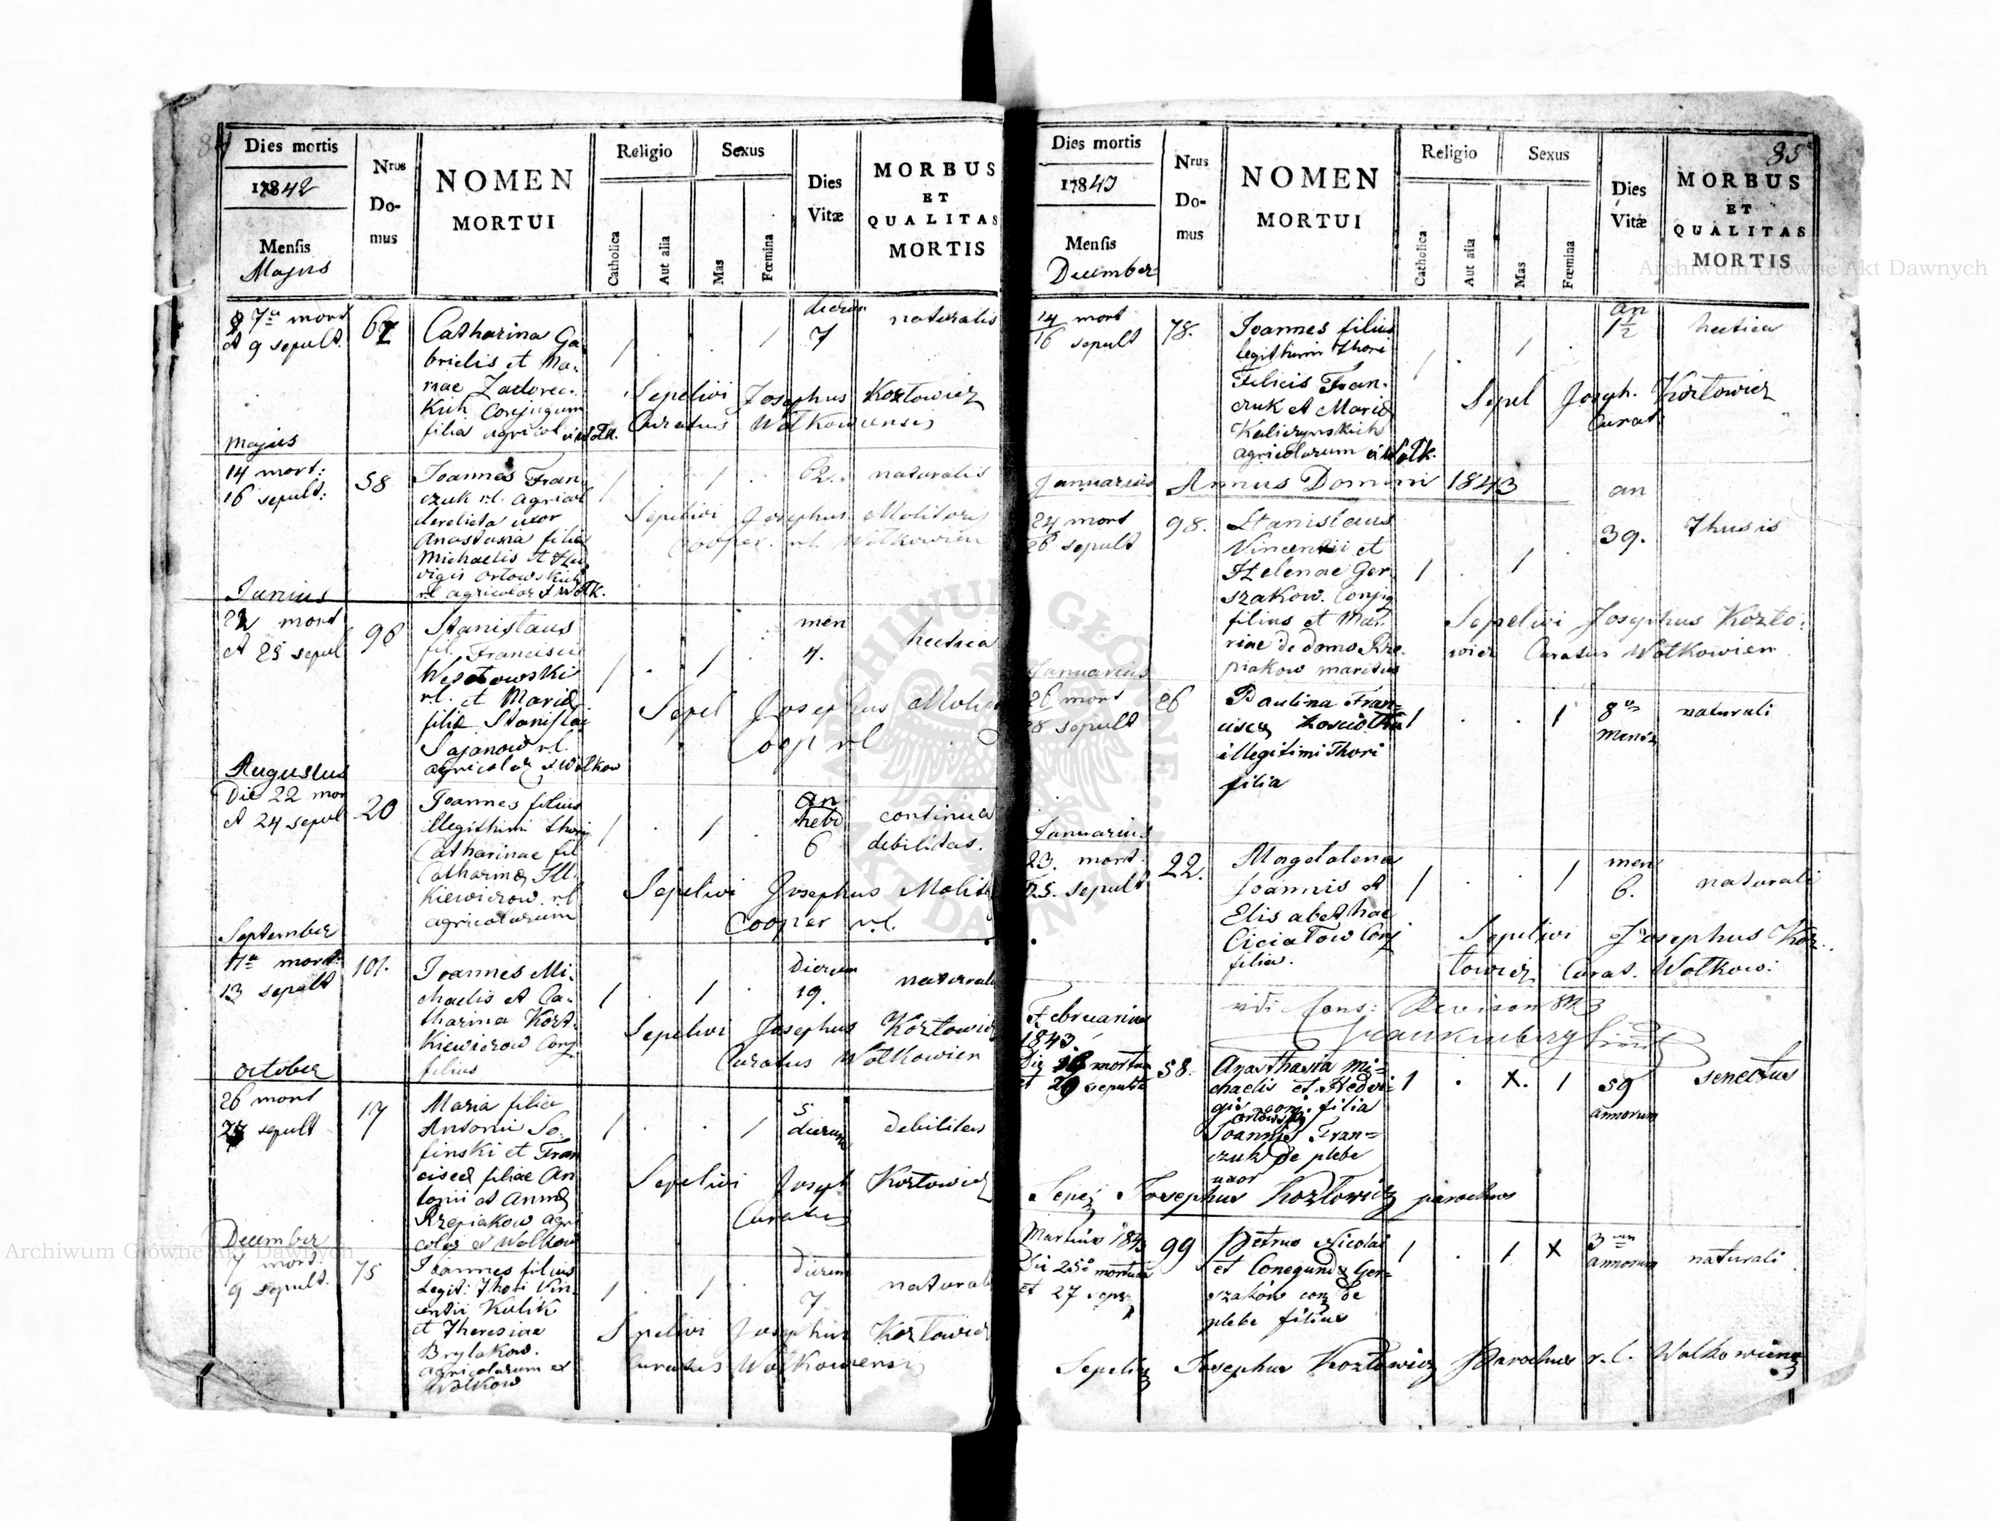 84
Dies mortis
1842
Mensis
Majus
Nrus
Do-
mus
NOMEN
MORTUI
Religio
Catholica
Aut alia
Sexus
Mas
Fœmina
Dies
Vitæ
MORBUS
ET
QUALITAS
MORTIS
7ma mort
et 9 sepult.
Catharina Ga-
brielis et Ma-
riae
Kich Conjugum
filia agricol
dierum
7
naturalis
Sepelivi Josephus Kozłowicz
Curatus Wołkowiensis
Majus
14 mort:
16 sepult:
58
Joannes Fran-
czuk r.l. agricol
derelicta uxor
Anastasia filia
Michaelis et
Orłowskich
r.l. agricolar
62.
naturalis
Sepelivi Josephus Molitoris
Cooper. r.l. Wolkowien
Junius
mort
et 25 sepul
98
Stanislaus
fil. Francisci
Wesołowski
r.l. et Maria
filia Stanislai
Sajanow r.l.
agricolar
men
4.
hectica
Sepel Josephus
Coop r.l
Augustus
Die 22 mor
et 24 sepul
20
Joannes filius
illegithimi thori
Catharinae fil
kiewiczow. r.l
agricolarum
hebd
6
continua
debilitas.
Sepelivi Josephus Molit
Cooper r.l.
September
11a mort:
13 sepult
101.
Joannes Mi-
chaelis et Ca-
tharina Kozt-
Kiewiczow Conj
filius
Dierum
19.
naturali
Sepelivi Josephus Kozłowicz
Curatus Wołkowien
October
26 mort
sepult
17
Maria filia
Antonii So-
finski et Fran
cisca filiae An
tonii et Anna
Rzepiakow agri
colar e Wolkow
5
dierum
debilitas
Sepelivi Joseph Kozłowicz
Curatus
December
7 mort:
9 sepult.
75
Joannes filius
Legit: Thori Vin-
centii Kulik
et Theresiae
Brylakow.
agricolarum ex
Wolkow
Dierum
7
naturali
Sepelivi Josephus Kozłowicz
Curatus Wolkowiensis
85
Dies mortis
1843
Mensis
December
Nrus
Do-
mus
NOMEN
MORTUI
Religio
Catholica
Aut alia
Sexus
Mas
Fœmina
Dies
Vitæ
MORBUS
ET
QUALITAS
MORTIS
14 mort
16 sepult
78.
Joannes filius
legithimi thori
Felicis Fran-
czuk et Maria
Kaliczynskich
agricolarum
an
1½
hectica
Sepel Joseph. Kozłowicz
Curat
Januarius Annus Domini 1843
24 mort
26 sepult
98.
Stanislaus
Vincentii et
Helenae Ger-
szakow. Conjug
filius et Mar-
riae de domo Rze-
piakow maritus
an
39.
Thusis
Sepelivi Josephus Kozło-
wicz Curatus Wołkowien
Januarius
26 mort
28 sepult
26
Paulina Fran-
cisca
illegitimi Thori
filia
8
mens
naturali
Januarius
23. mort
25. sepult
22.
Magdalena
Joannis et
Elisabethae
Ciciałow Conj
filia.
men
6.
naturali
Sepelivi Josephus Koz-
łowicz Curat. Wołkow:
vidi Cons: Revision 843
Februarius
1843.
Die mortua
et sepulta
58.
Anasthasia Mi-
chaelis et Hedvi-
gis conj. filia
Orłowski
Joannis Fran=
czuk de plebe
uxor
59
annorum
senectus
Sepel Josephus Kozłowicz parochus
Martius 1843
Die 25 mortuus
et 27 sep
99
Petrus Nicolai
et Conegunda Ger-
szaków conj de
plebe filius
3
annorum
naturali
Sepelivi Josephus Kozłowicz Parochus r.l. Wolkowiensis
Archiwum Główne Akt Dawnych
Archiwum Główne Akt Dawnych
ARCHIWUM GŁÓWNE AKT DAWNYCH